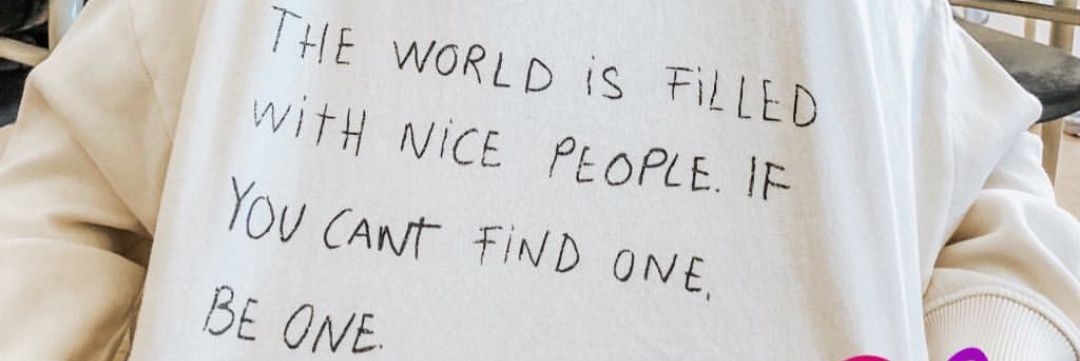 THE WORLD iS FiLLED
WiTH NiCE PEOPLE. IF
YOU CANT FiND ONE,
BE ONE.